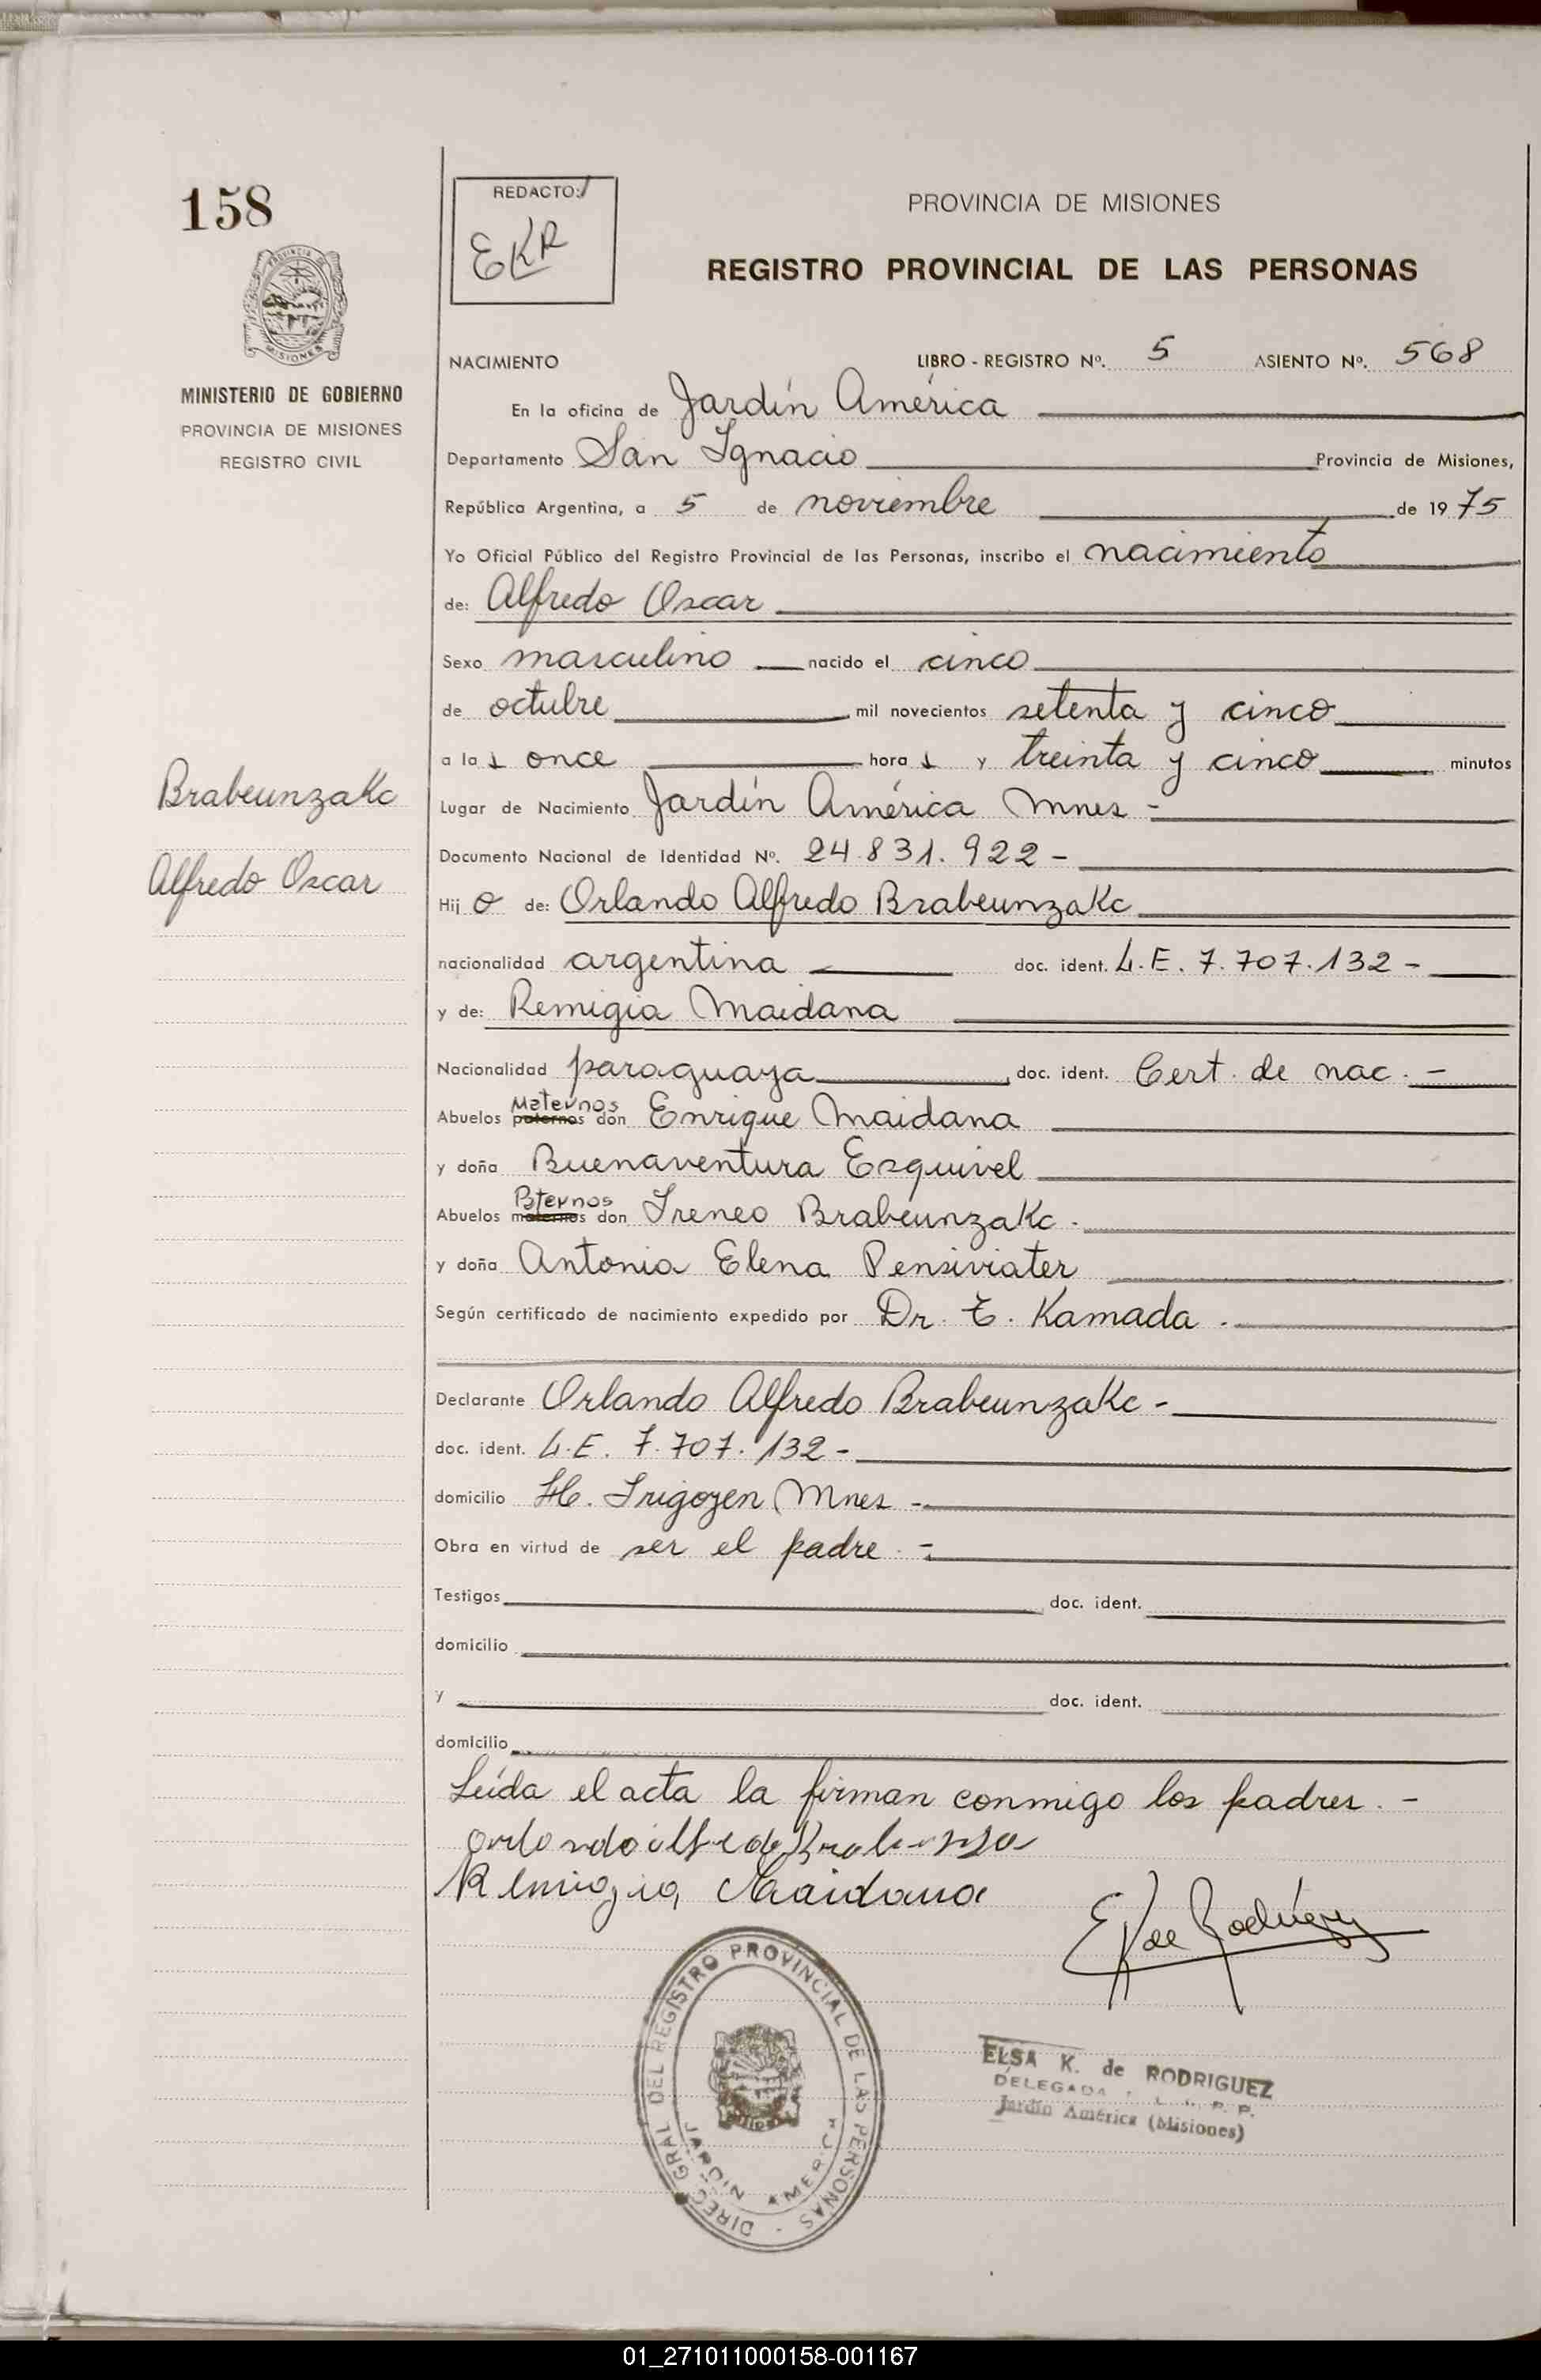 158
REDACTO:
EKR
PROVINCIA DE MISIONES
REGISTRO PROVINCIAL DE LAS PERSONAS
PROVINCIA DE MISIONES
MINISTERIO DE GOBIERNO
PROVINCIA DE MISIONES
REGISTRO CIVIL
NACIMIENTO LIBRO - REGISTRO Nº. 5 ASIENTO Nº. 568
En la oficina de Jardín América
Departamento San Ignacio Provincia de Misiones,
República Argentina, a 5 de noviembre de 1975
Yo Oficial Público del Registro Provincial de las Personas, inscribo el nacimiento
de: Alfredo Oscar
Sexo masculino nacido el cinco
de octubre mil novecientos setenta y cinco
a las once horas y treinta y cinco minutos
Brabeunzakc
Alfredo Oscar
Lugar de Nacimiento Jardín América Mnes -
Documento Nacional de Identidad Nº. 24.831.922 -
Hijo de: Orlando Alfredo Brabeunzakc
nacionalidad argentina doc. ident. L.E. 7.707.132 -
y de: Remigia Maidana
Nacionalidad paraguaya doc. ident. Cert. de nac. -
Maternos
Abuelos paternos don Enrique Maidana
y doña Buenaventura Esquivel
Paternos
Abuelos maternos don Ireneo Brabeunzakc.
y doña Antonia Elena Pensiviater
Según certificado de nacimiento expedido por Dr. T. Kamada.
Declarante Orlando Alfredo Brabeunzakc -
doc. ident. L.E. 7.707.132 -
domicilio H. Irigoyen Mnes -
Obra en virtud de ser el padre. -
Testigos doc. ident.
domicilio
y doc. ident.
domicilio
Leída el acta la firman conmigo los padres. -
Remigia Maidana
EK de Rodríguez
DIREC. GRAL DEL REGISTRO PROVINCIAL DE LAS PERSONAS -
JARDIN AMERICA
ELSA K. de RODRIGUEZ
DELEGADA
Jardín América (Misiones)
01_271011000158-001167